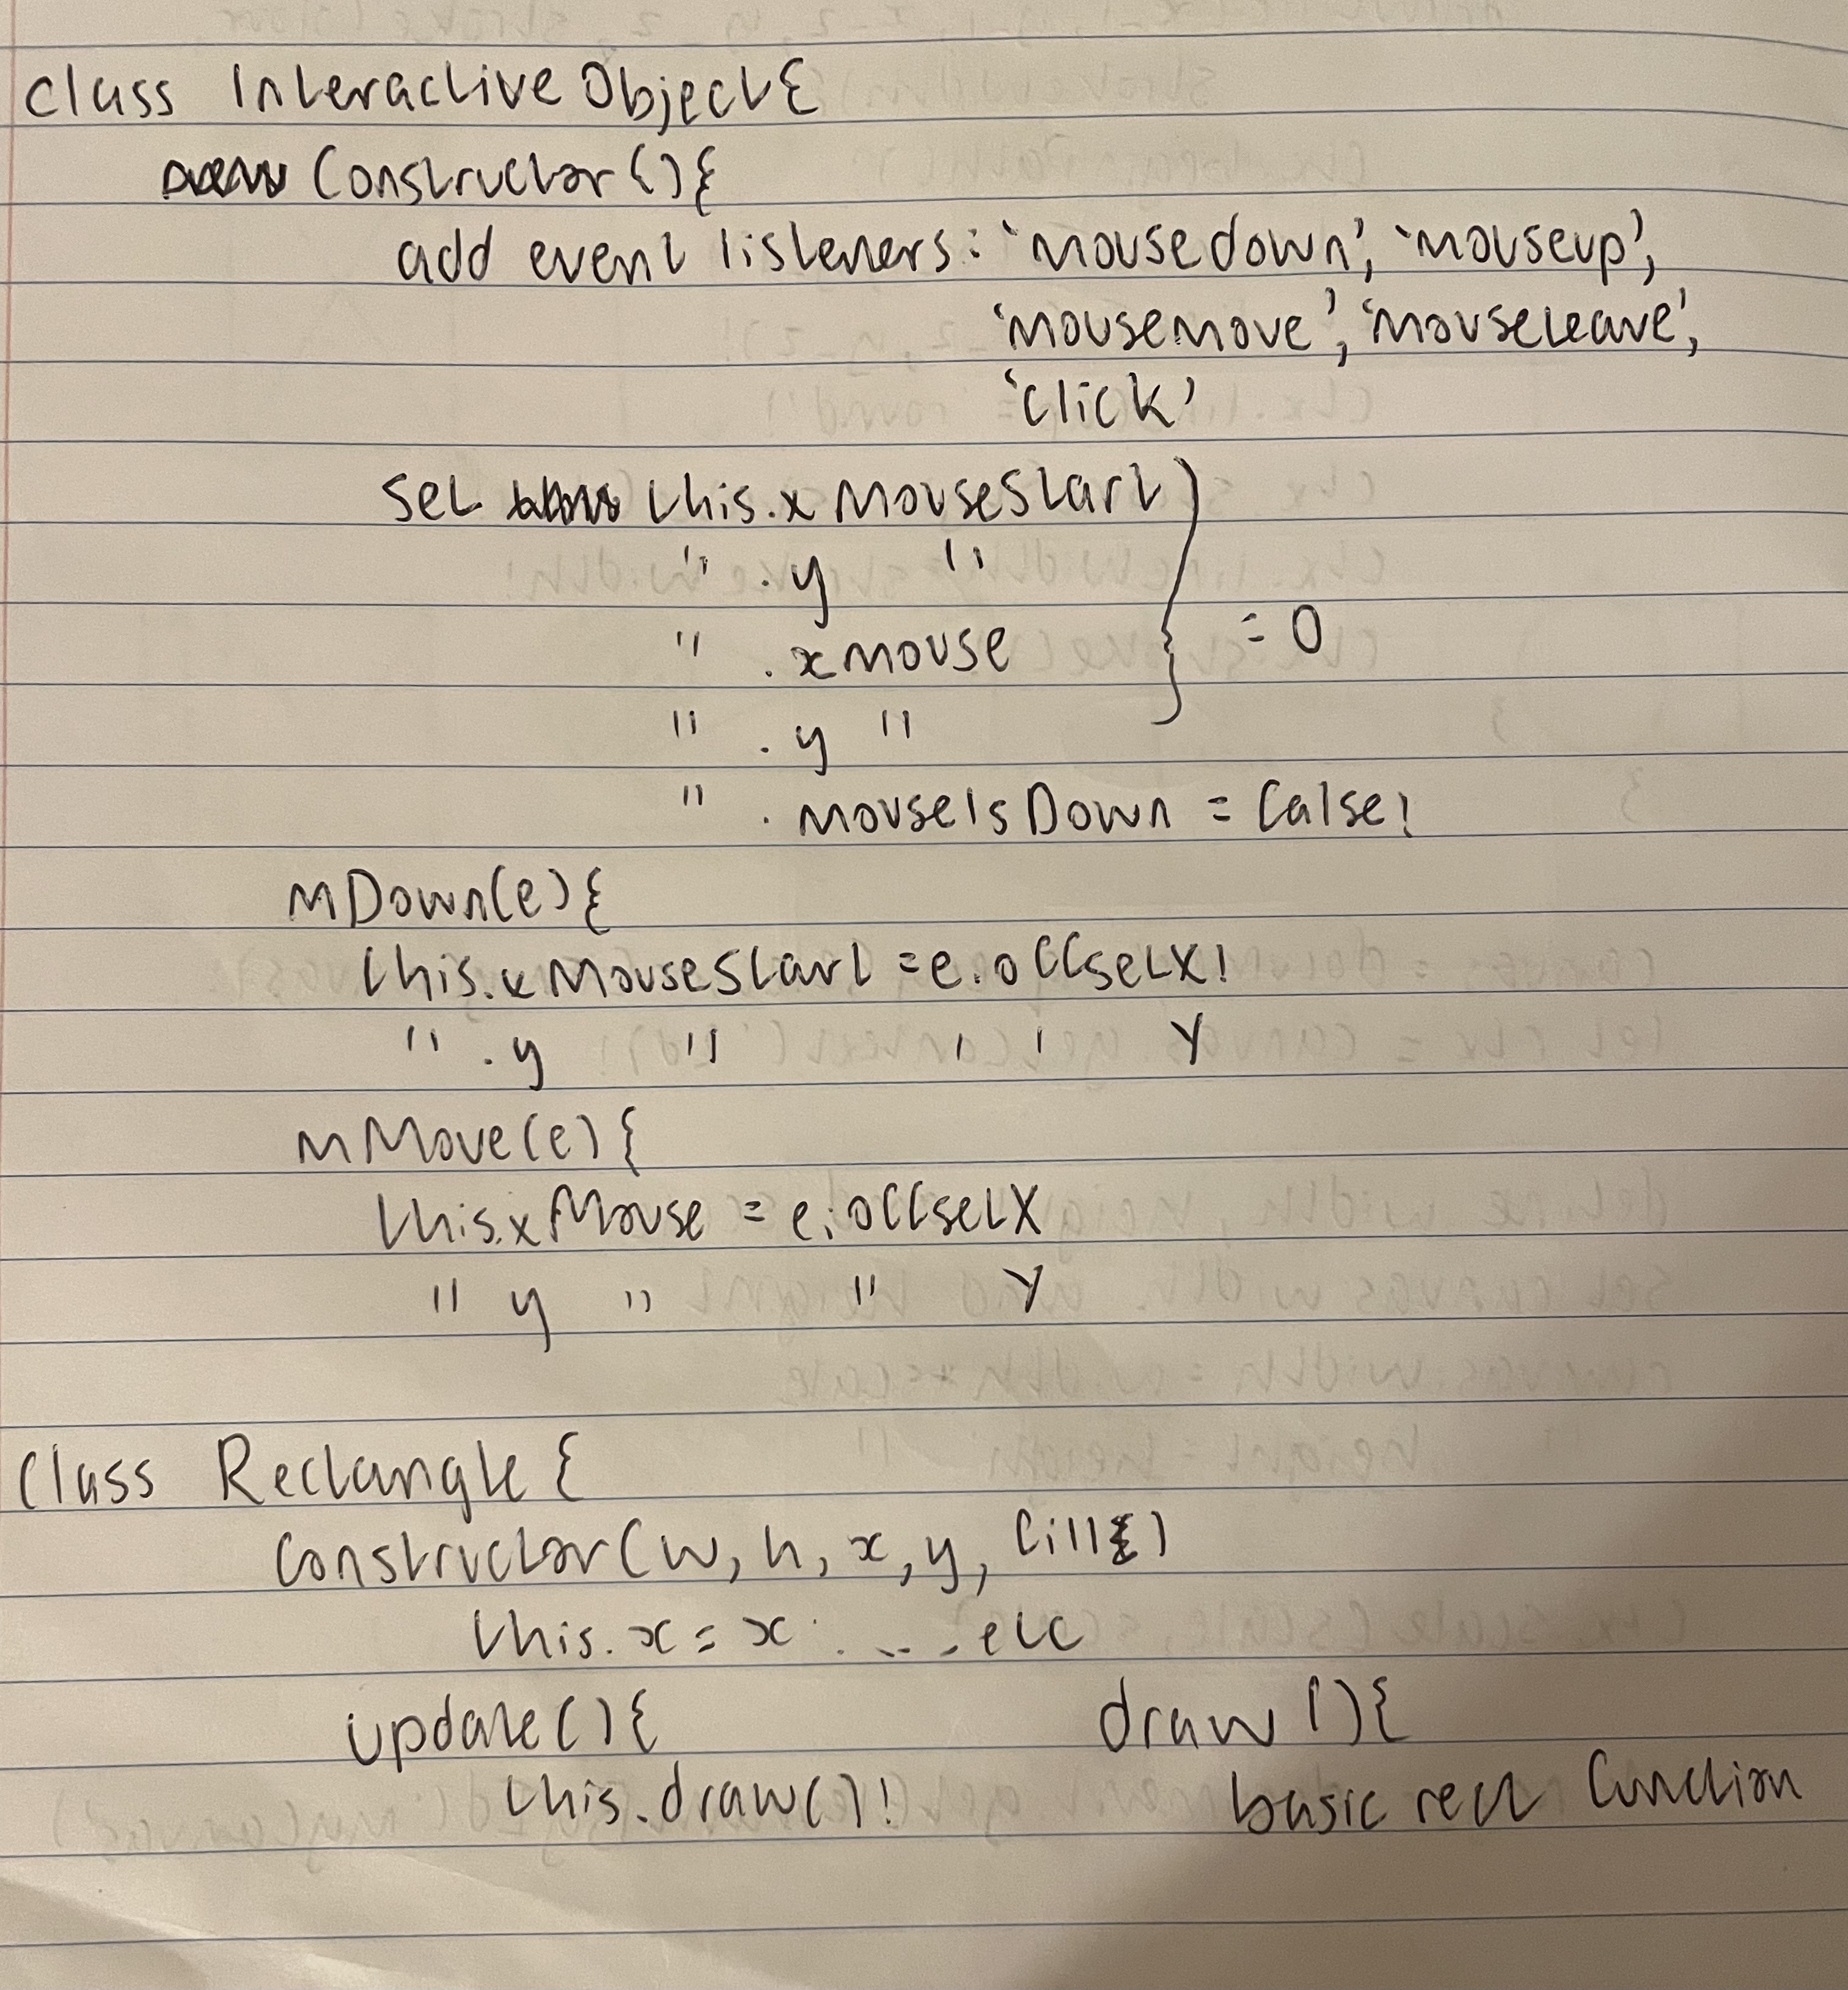 class InteractiveObject{
Constructor(){
add event listeners: 'mousedown', 'mouseup',
'mousemove', 'mouseleave',
'click'
set this.xMouseStart
" .y "
" .xmouse } = 0
" .y "
" .mouseIsDown = false;
mDown(e){
this.xMouseStart = e.offsetX;
" .y " " Y
mMove(e){
this.xMouse = e.offsetX
" y " " Y
class Rectangle {
constructor(w, h, x, y, fill)
this.x = x ....etc
update(){ draw(){
this.draw(); basic rect function